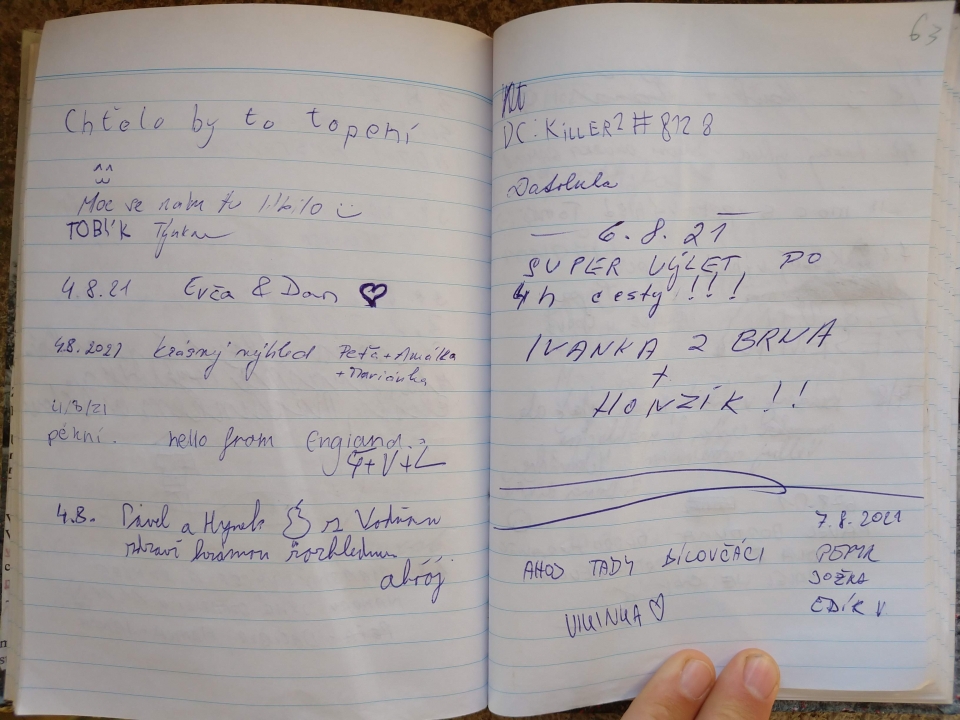 Chtělo by to topení
^^
Moc se nám tu líbilo
TOBÍK Týnka
4.8.21 Evča & Dan ♥
4.8.2021 krásný výhled Peťa + Amálka
+ Mariánka
4/8/21
pěkní. hello from England.
+V+L
4.8. Pavel a Hynek z Vodňan
zdraví krásnou rozhlednu
ahój
63
DC: KiLLER2 #8128
6.8.21
SUPER VÝLET PO
4h cesty !!!
IVANKA Z BRNA
+
HONZÍK !!
7.8.2021
AHOJ TADY BÍLOVČÁCI PETR
JOŽKA
EDÍK V
VIKINKA ♡